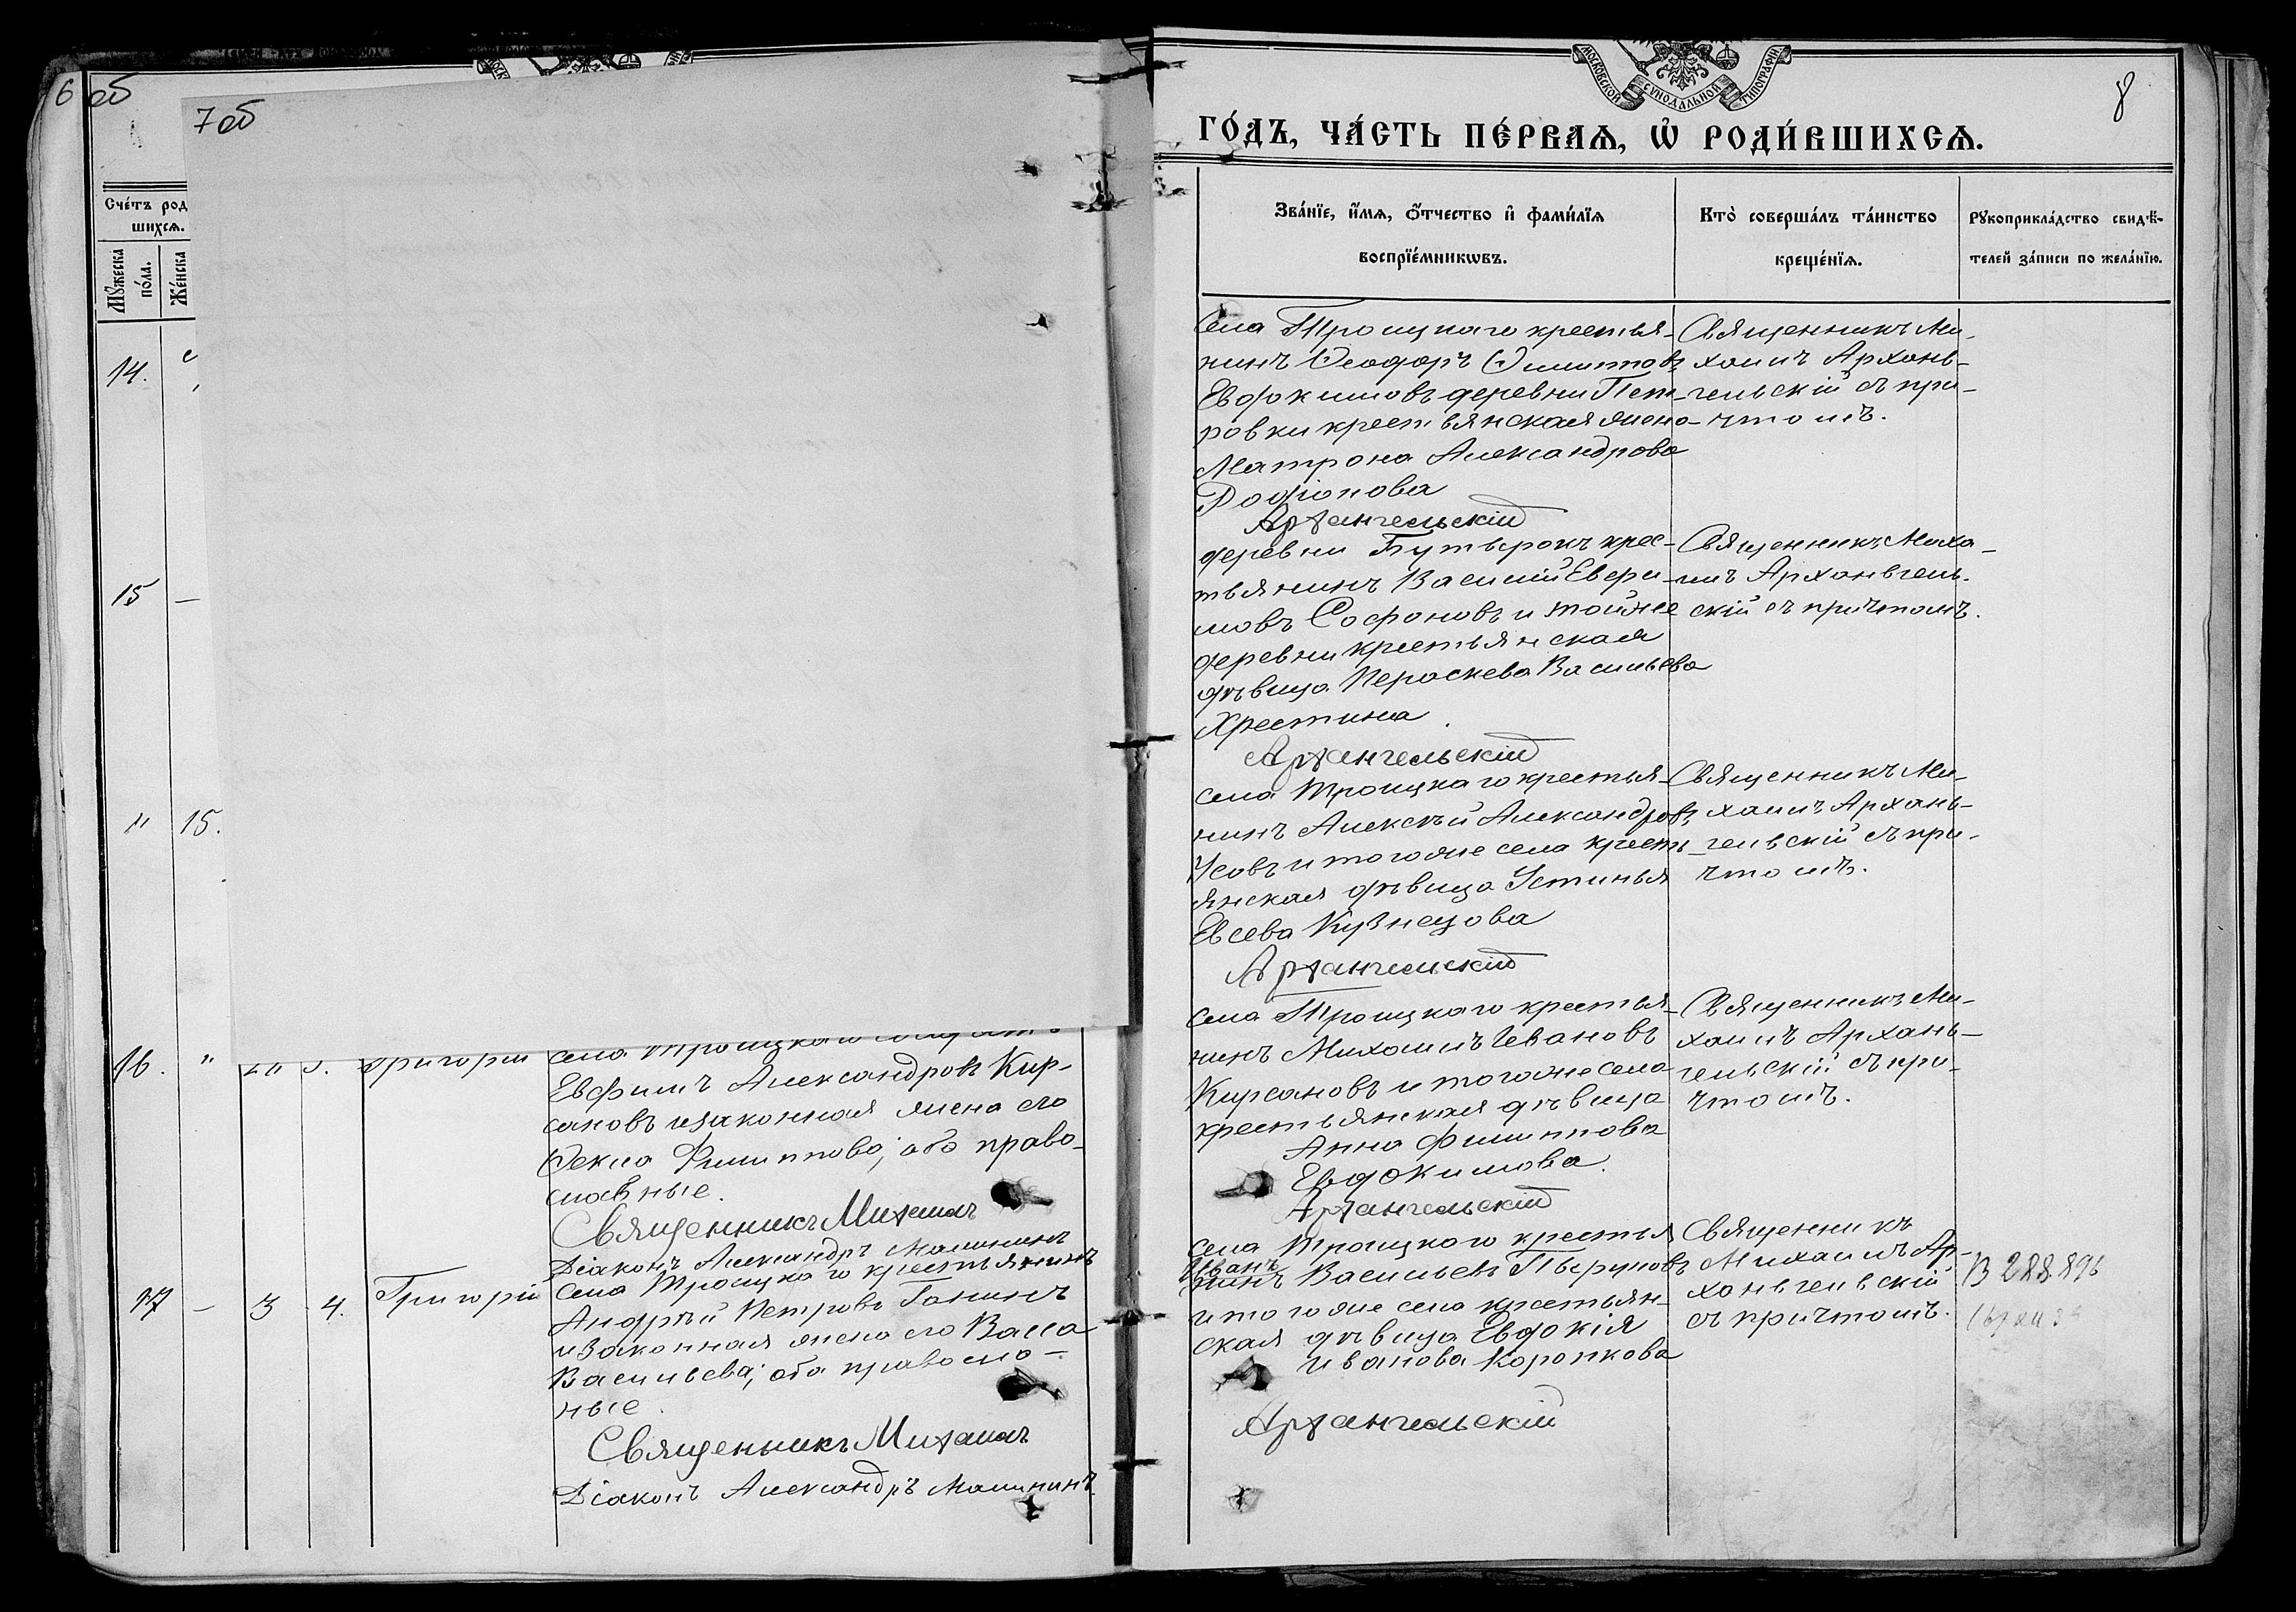 6 об
7 об
Счетъ род
шихся.
Мужеска
пола.
Женска
14.
15 —
" 15.
16. " Григорій села Троицкаго
Евфимъ Александровъ Кир-
сановъ и законная жена его
Ѳекла Филиппова; оба право-
славные.
Священникъ Михаилъ
Діаконъ Александръ Малининъ
17 — 3 4. Григорій села Троицкаго крестьянинъ
Андрѣй Петровъ Ганинъ
и законная жена его Васса
Васильева; оба правосла-
ные.
Священникъ Михаилъ
Діаконъ Александръ Малининъ
МОСКОВСКОЙ СѴНОДАЛЬНОЙ ТИПОГРАФІИ
8
ГОДЪ, ЧАСТЬ ПЕРВАЯ, Ѡ РОДИВШИХСЯ.
Званіе, имя, отчество и фамилія
воспріемниковъ.
Кто совершалъ таинство
крещенія.
Рукоприкладство свидѣ-
телей записи по желанію.
Села Троицкаго крестья-
нинъ Ѳеодоръ Филиппов
Евдокимовъ деревни Пет-
ровки крестьянская жена
Матрона Александрова
Родіонова
Архангельскій
Священникъ Ми-
хаилъ Архань-
гельскій съ при-
чтомъ.
деревни Бутырокъ крес-
тьянинъ Василій Ефри-
мовъ Софоновъ и тойже
деревни крестьянская
дѣвица Пераскева Васильева
Хрестина.
Архангельскій
Священникъ Миха-
илъ Арханьгель-
скій съ причтомъ.
села Троицкаго крестья-
нинъ Алексѣй Александровъ
Усовъ и тогоже села кресть-
янская дѣвица Устинья
Евсева Кузнецова
Архангельскій
Священникъ Ми-
хаилъ Архань-
гельскій съ при-
чтомъ.
села Троицкаго крестья-
нинъ Михаилъ Ивановъ
Кирсановъ и тогоже села
крестьянская дѣвица
Анна Филиппова
Евдокимова.
Архангельскій
Священникъ Ми-
хаилъ Архань-
гельскій съ при-
чтомъ.
села Троицкаго крестья
Иванъ
нинъ Васильевъ Пыруновъ
и тогоже села крестьян-
ская дѣвица Евдокія
Иванова Коропкова
Архангельскій
Священникъ
Михаилъ Ар-
ханьгельскій
съ причтомъ.
В 288896